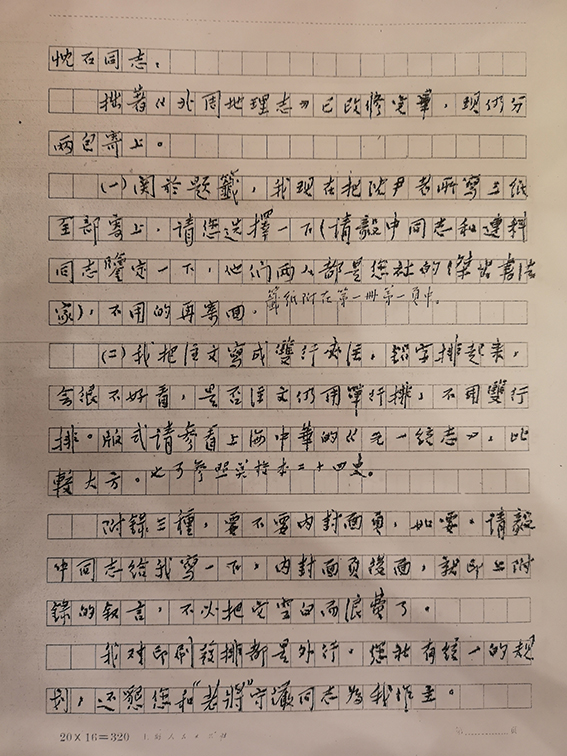 忱石同志：
拙著《北周地理志》已改修完畢，現仍分
两包寄上。
(一)関於題籤，我現在把沈尹老所寫三纸
全部寄上，请您选擇一下(请毅中同志和連科
同志鑒定一下，他们两人都是您社的傑出書法
家)，不用的再寄回，籤纸附在第一册第一頁中。
(二)我把注文寫成雙行夾注，鉛字排起来，
会很不好看，是否注文仍用單行排，不用雙行
排。版式请参看上海中華的《元一統志》，比
較大方。也可参照英排本二十四史。
附錄三種，要不要内封面頁，如要，请毅
中同志给我寫一下，内封面頁後面，就印上附
錄的叙言，不必把它空白而浪费了。
我对印刷 排都是外行，您社有统一的規
划，还懇您和“老將”守儼同志為我作主。
20×16=320 上海人民出版社 第 頁